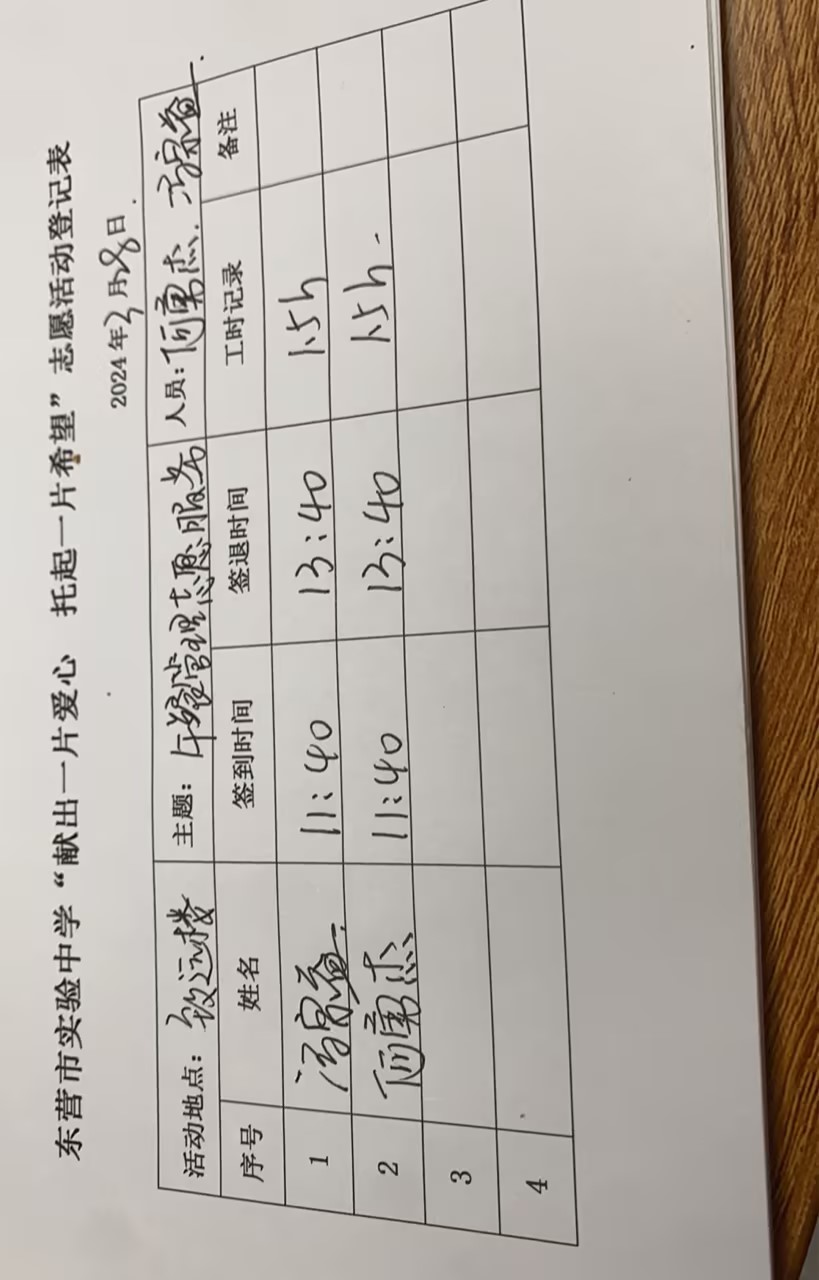 东营市实验中学“献出一片爱心 托起一片希望”志愿活动登记表
2024年3月28日.
活动地点：致远楼 主题：午餐管理志愿服务 人员：何勇杰.
序号 姓名 签到时间 签退时间 工时记录 备注
1 11:40 13:40 1.5h
2 何勇杰 11:40 13:40 1.5h.
3
4